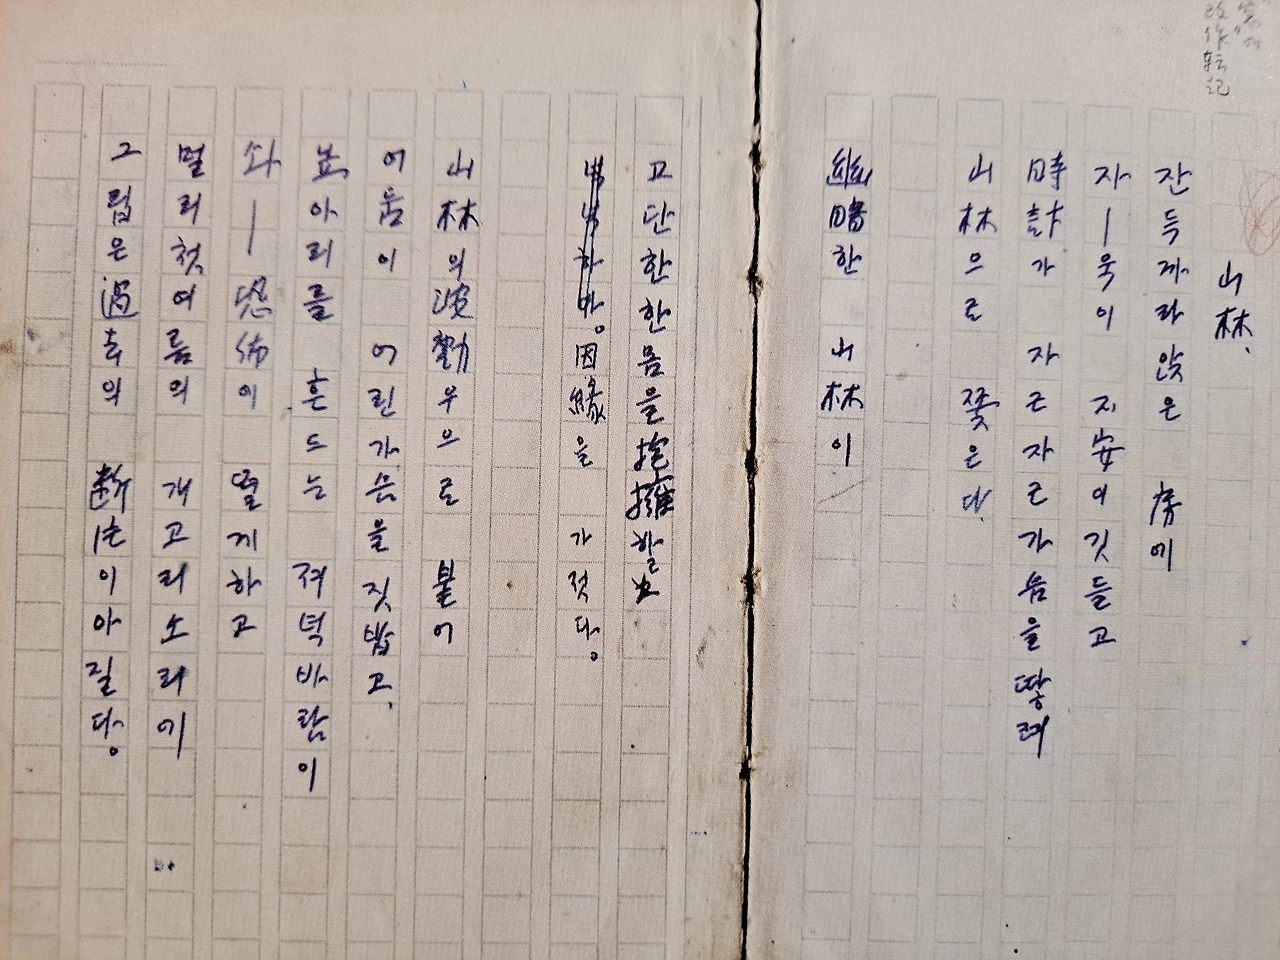 山林、
잔득까라앉은 房에
자―욱이 지安이깃들고
時計가 자근자근가슴을땋려
山林으로 쫓은다.
幽暗한 山林이
고단한한몸을抱擁할
因緣을 가젓다。
山林의波動우으로 붙어
어둠이 어린가슴을짓밟고、
뇨아리를 흔드는 저녁바람이
솨―恐怖에 떨게하고
멀리첫여름의 개고리소리에
그립은過去의 断片이아질다。